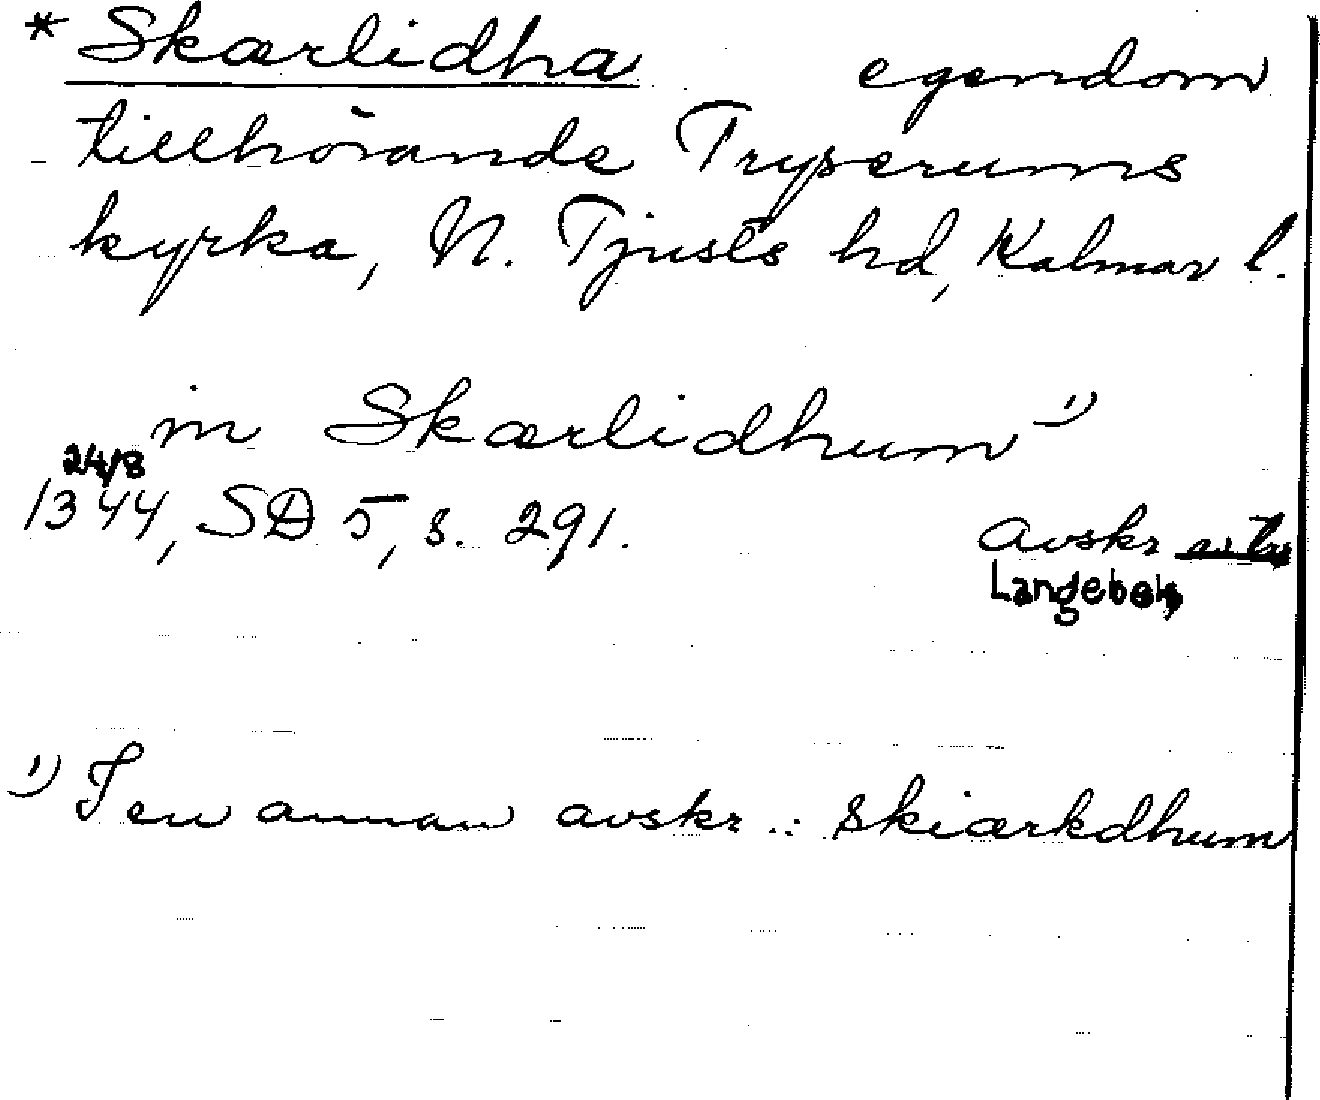 * Skærlidha egendom
tillhörande Tryserums
kyrka, N. Tjusts hd, Kalmar l.
in Skærlidhum 1)
24/8
1344, SD 5, s. 291.
avskr
Langebek
1) I en annan avskr.: Skiærkdhum